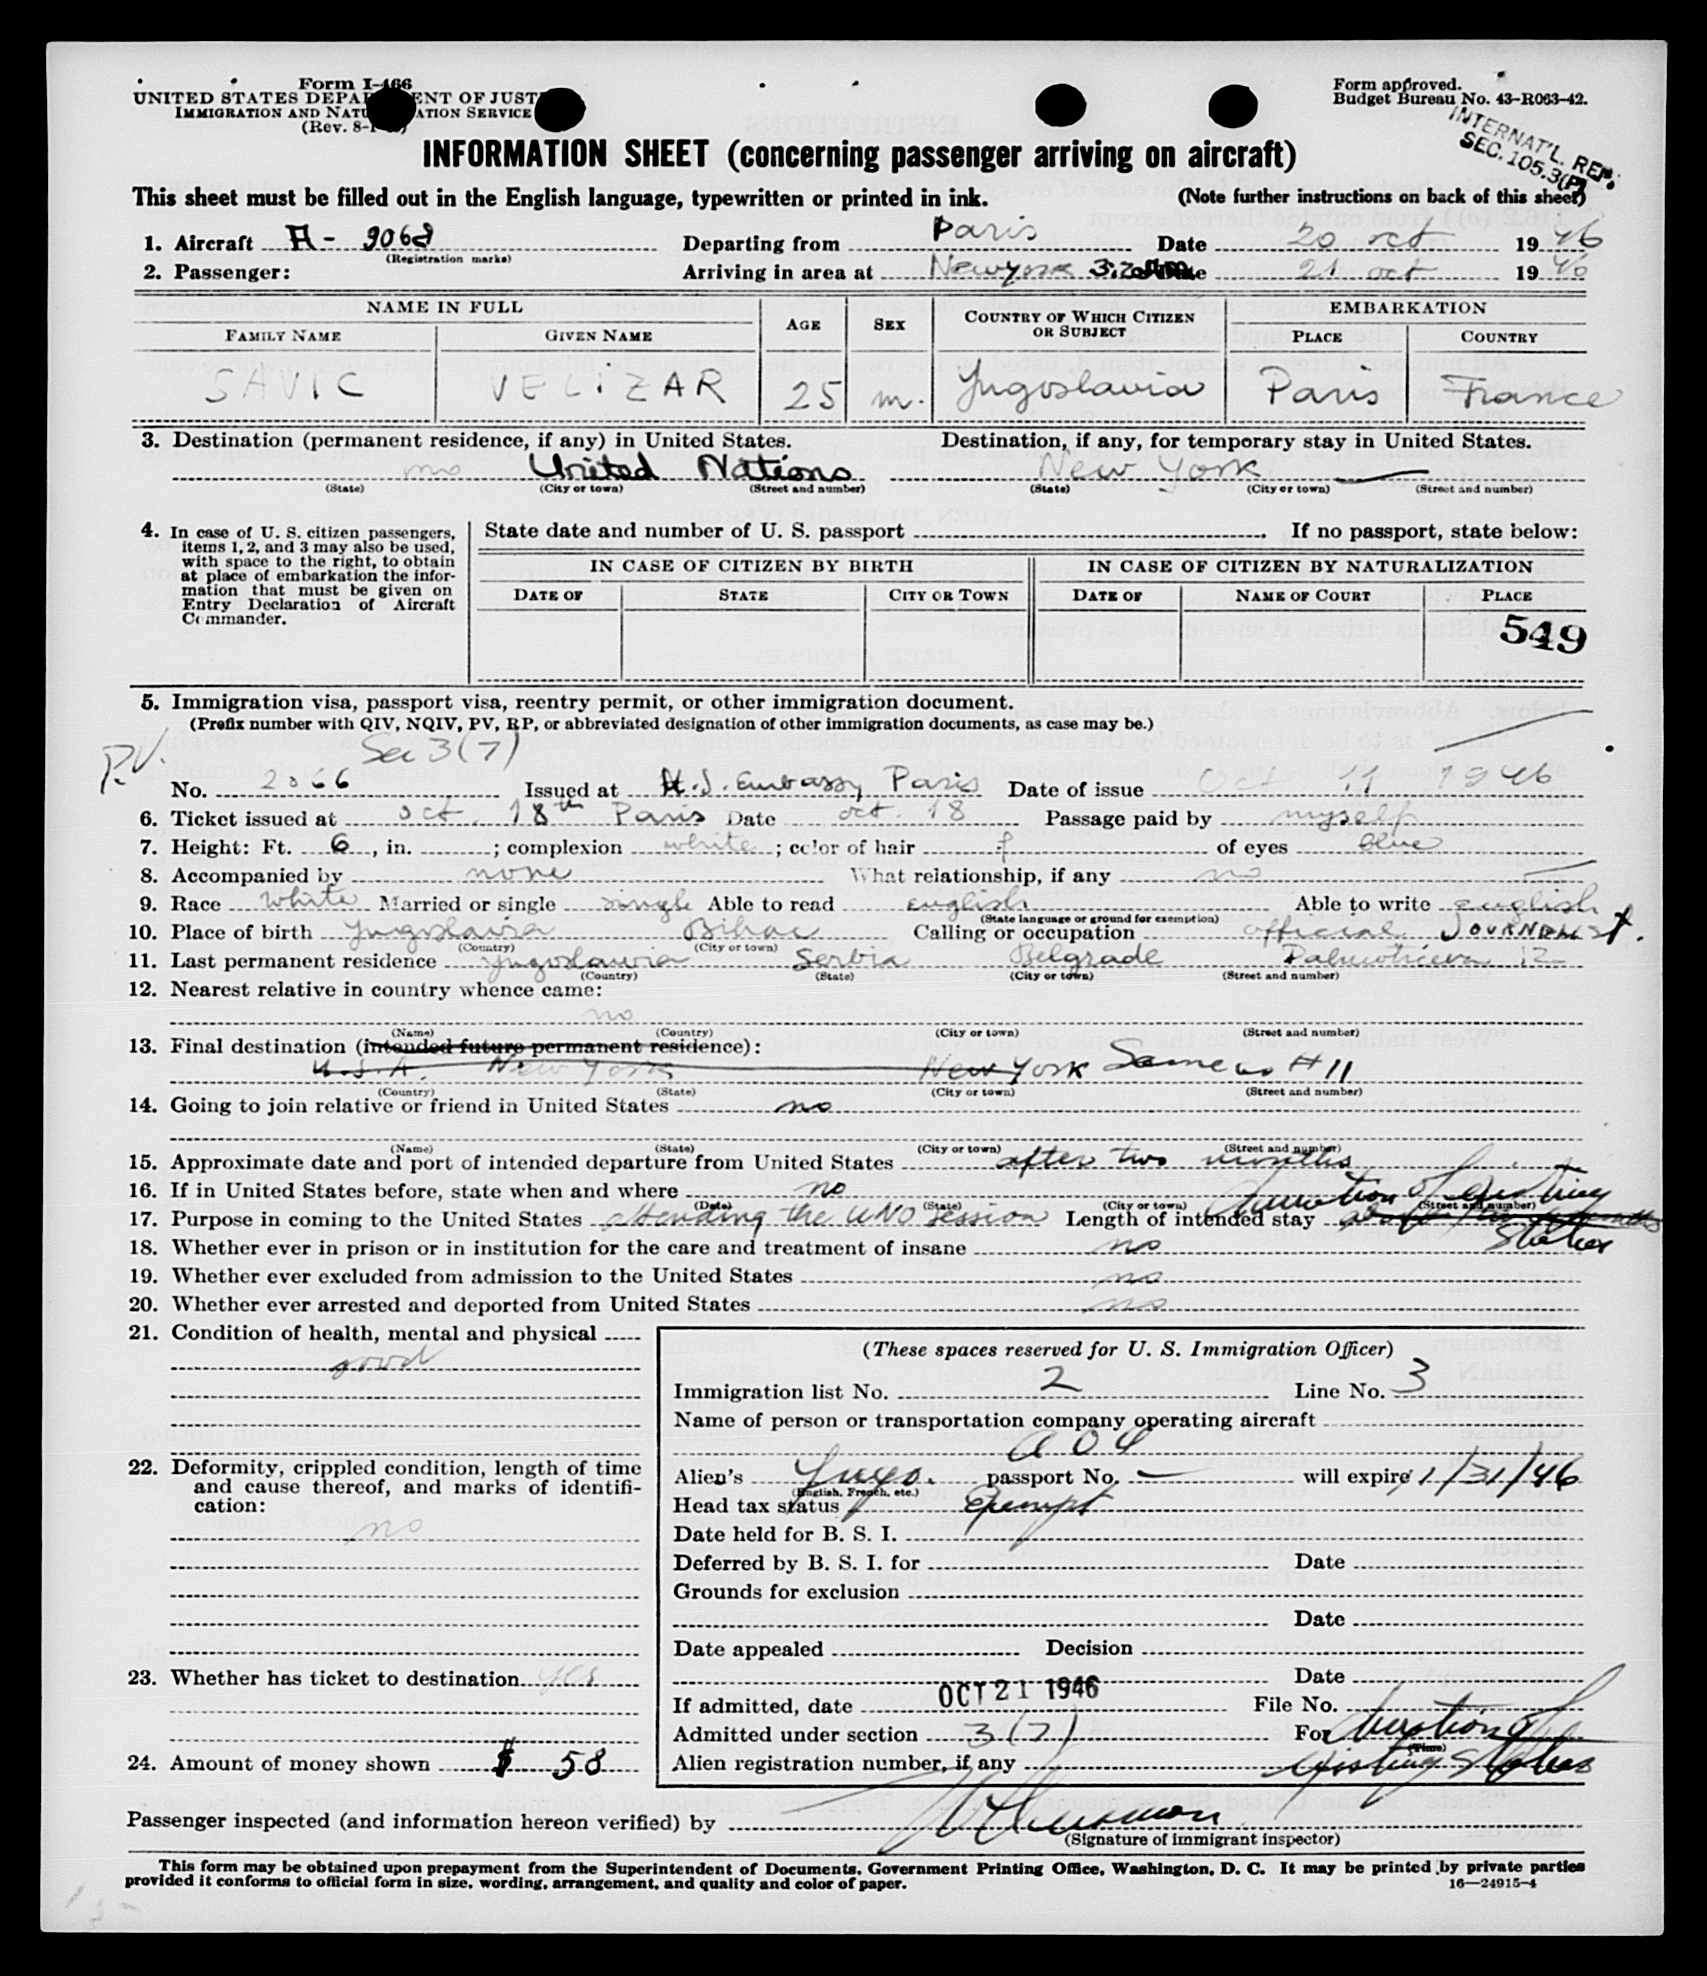 Form I-466
UNITED STATES DEPA ENT OF JUST
IMMIGRATION AND NATU ATION SERVICE
(Rev. 8-1
Form approved.
Budget Bureau No. 43-R063-42.
INTERNAT'L. REP.
SEC. 105.3(P)
INFORMATION SHEET (concerning passenger arriving on aircraft)
This sheet must be filled out in the English language, typewritten or printed in ink. (Note further instructions on back of this sheet)
1. Aircraft A- 9068 Departing from Paris Date 20 oct 1946
(Registration marks)
2. Passenger: Arriving in area at New york Date 21 oct 1946
NAME IN FULL AGE SEX COUNTRY OF WHICH CITIZEN OR SUBJECT EMBARKATION
FAMILY NAME GIVEN NAME PLACE COUNTRY
SAVIC VELIZAR 25 m. Yugoslavia Paris France
3. Destination (permanent residence, if any) in United States. Destination, if any, for temporary stay in United States.
no United Nations New York
(State) (City or town) (Street and number) (State) (City or town) (Street and number)
4. In case of U. S. citizen passengers, items 1, 2, and 3 may also be used, with space to the right, to obtain at place of embarkation the information that must be given on Entry Declaration of Aircraft Commander.
State date and number of U. S. passport If no passport, state below:
IN CASE OF CITIZEN BY BIRTH IN CASE OF CITIZEN BY NATURALIZATION
DATE OF STATE CITY OR TOWN DATE OF NAME OF COURT PLACE
549
5. Immigration visa, passport visa, reentry permit, or other immigration document.
(Prefix number with QIV, NQIV, PV, RP, or abbreviated designation of other immigration documents, as case may be.)
P.V. Sec 3(7)
No. 2066 Issued at U.S. Embassy Paris Date of issue Oct 11 1946
6. Ticket issued at oct. 18th Paris Date oct. 18 Passage paid by myself
7. Height: Ft. 6, in. ; complexion white ; color of hair of eyes blue
8. Accompanied by none What relationship, if any no
9. Race white Married or single single Able to read english Able to write english
(State language or ground for exemption)
10. Place of birth Yugoslavia Bihac Calling or occupation official JOURNALIST.
(Country) (City or town)
11. Last permanent residence Yugoslavia Serbia Belgrade Palmoticeva 12
(Country) (State) (City or town) (Street and number)
12. Nearest relative in country whence came:
no
(Name) (Country) (City or town) (Street and number)
13. Final destination (intended future permanent residence):
U.S.A. New York New York Same as #11
(Country) (State) (City or town) (Street and number)
14. Going to join relative or friend in United States no
(Name) (State) (City or town) (Street and number)
15. Approximate date and port of intended departure from United States after two months
16. If in United States before, state when and where no
(Date) (State) (City or town) (Street and number)
17. Purpose in coming to the United States attending the UNO session Length of intended stay duration of existing status
18. Whether ever in prison or in institution for the care and treatment of insane no
19. Whether ever excluded from admission to the United States no
20. Whether ever arrested and deported from United States no
21. Condition of health, mental and physical
good
22. Deformity, crippled condition, length of time and cause thereof, and marks of identification:
no
23. Whether has ticket to destination yes
24. Amount of money shown $ 58
(These spaces reserved for U. S. Immigration Officer)
Immigration list No. 2 Line No. 3
Name of person or transportation company operating aircraft
a o a
Alien's Yugo. passport No. — will expire 1/31/46
(English, French, etc.)
Head tax status Exempt
Date held for B. S. I.
Deferred by B. S. I. for Date
Grounds for exclusion
Date
Date appealed Decision
Date
If admitted, date OCT 21 1946 File No.
Admitted under section 3(7) For duration of
(Time)
Alien registration number, if any existing status
Passenger inspected (and information hereon verified) by
(Signature of immigrant inspector)
This form may be obtained upon prepayment from the Superintendent of Documents, Government Printing Office, Washington, D. C. It may be printed by private parties
provided it conforms to official form in size, wording, arrangement, and quality and color of paper. 16—24915-4